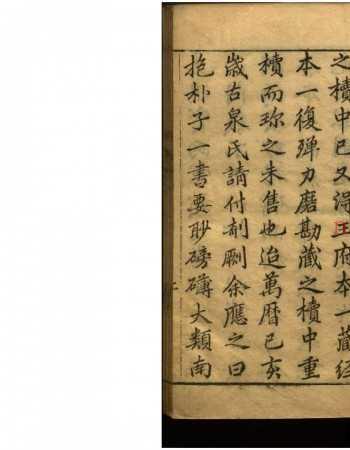 之櫝中已又得王府本一藏经
本一復殫力磨勘藏之櫝中重
櫝而珎之未售也迨萬暦己亥
嵗古泉氏請付剞劂余應之曰
抱朴子一書要眇磅礴大類南